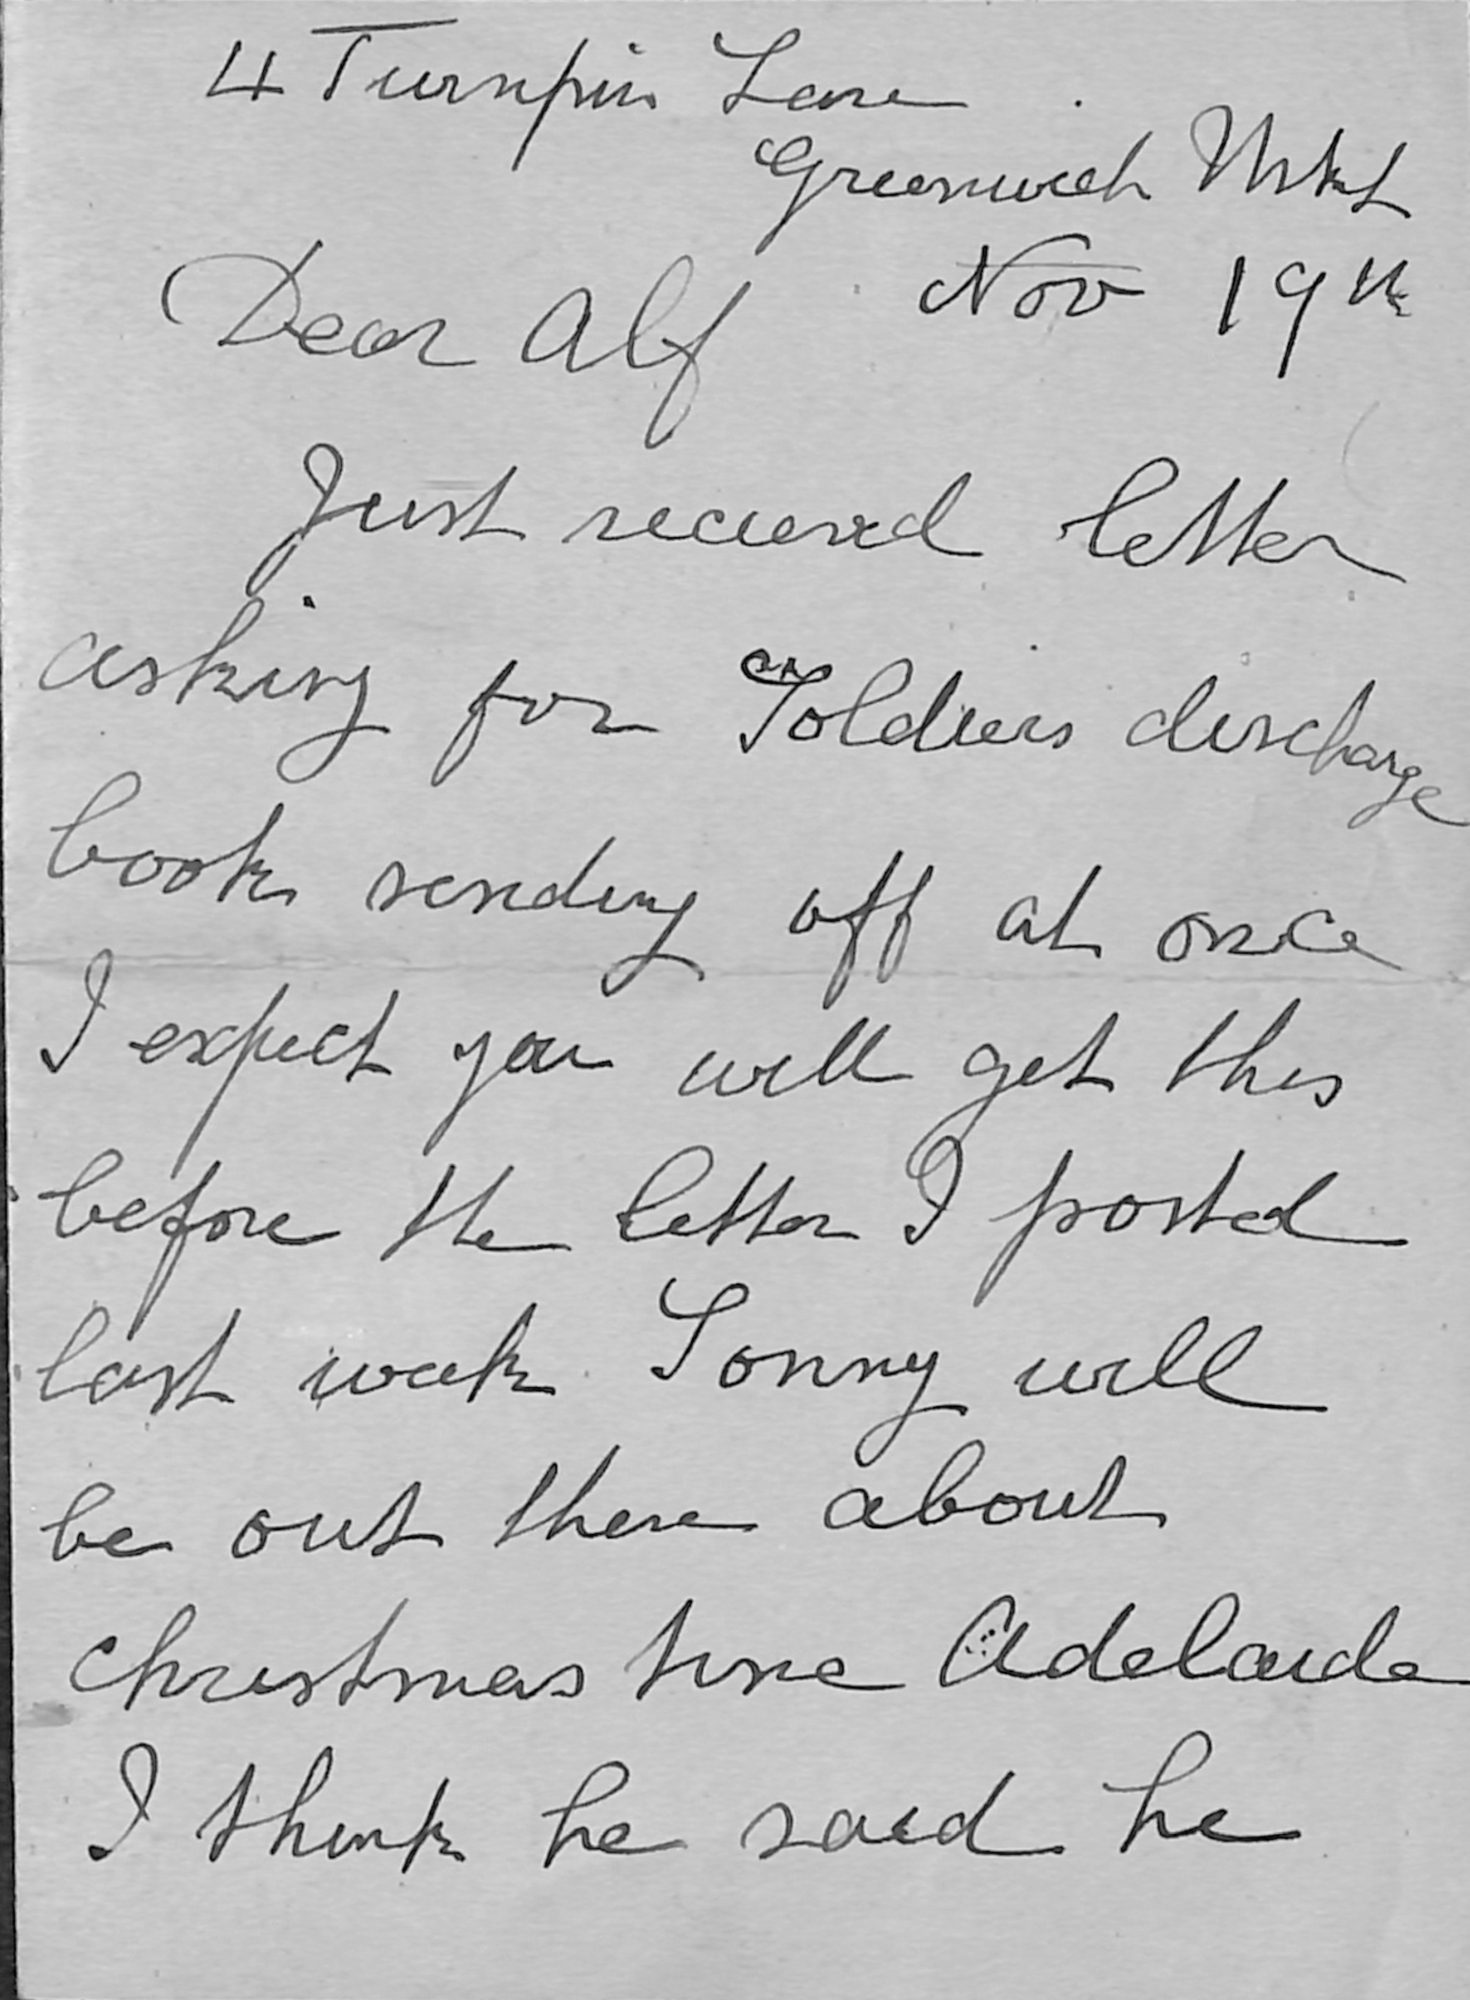 4 Turnpin Lane
Greenwich Mrkt
Nov 19th
Dear Alf
Just recieved letter
asking for Soldiers discharge
book sending off at once
I expect you will get this
before the letter I posted
last week Sonny will
be out there about
christmas time Adelaide
I think he said he